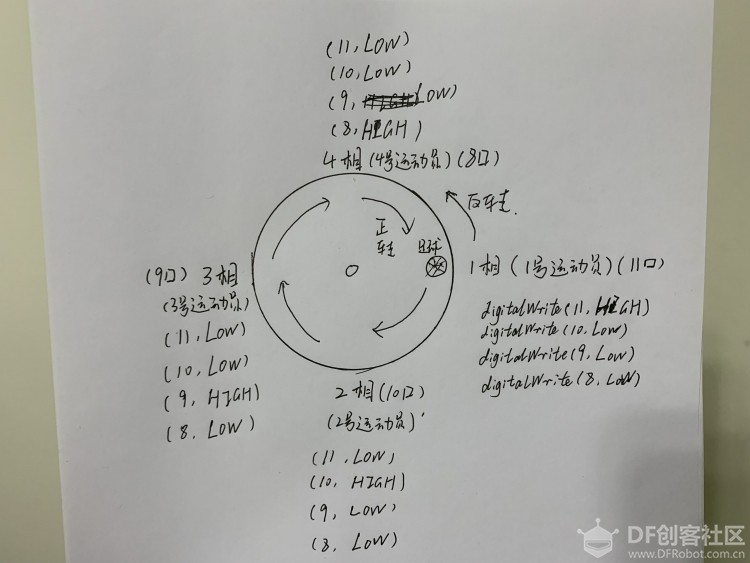 (11, LOW)
(10, LOW)
(9, LOW)
(8, HIGH)
4相(4号运动员)(8口)
反转
正转
足球
1相(1号运动员)(11口)
digitalWrite(11, HIGH)
digitalWrite(10, LOW)
digitalWrite(9, LOW)
digitalWrite(8, LOW)
(9口) 3相
(3号运动员)
(11, LOW)
(10, LOW)
(9, HIGH)
(8, LOW)
2相(10口)
(2号运动员)
(11, LOW)
(10, HIGH)
(9, LOW)
(8, LOW)
DF创客社区
www.DFRobot.com.cn